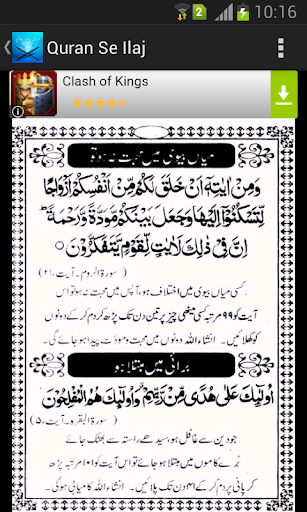 10:16
Quran Se Ilaj
Clash of Kings
میاں بیوی میں محبت نہ ہو تو
وَمِنْ اٰیٰتِهٖۤ اَنْ خَلَقَ لَكُمْ مِّنْ اَنْفُسِكُمْ اَزْوَاجًا
لِّتَسْكُنُوْۤا اِلَیْهَا وَجَعَلَ بَیْنَكُمْ مَّوَدَّةً وَّرَحْمَةً ؕ
اِنَّ فِیْ ذٰلِكَ لَاٰیٰتٍ لِّقَوْمٍ یَّتَفَكَّرُوْنَ ○
(سورۃ الروم۔ آیت۔۲۱)
کسی میاں بیوی میں اختلاف ہو، آپس میں محبت نہ ہو تو اس
آیت کو ۹۹ مرتبہ کسی میٹھی چیز پر تین دن تک پڑھ کر دم کر کے دونوں
کو کھلائیں۔ انشاء اللہ دونوں میں محبت و مودّت پیدا ہو جائے گی۔
برائی میں مبتلا ہو
اُولٰٓئِكَ عَلٰی هُدًی مِّنْ رَّبِّهِمْ وَاُولٰٓئِكَ هُمُ الْمُفْلِحُوْنَ
(سورۃ البقرہ۔ آیت۔۵)
جو دین سے غافل ہو، سیدھے راستہ سے بھٹک جائے
بُرے کاموں میں مبتلا ہو جائے تو اس آیت کو ۱۰۱ مرتبہ پڑھ
کر پانی پر دم کر کے ۴۱ دن تک پلائیں۔ انشاء اللہ کامیابی ہو گی۔